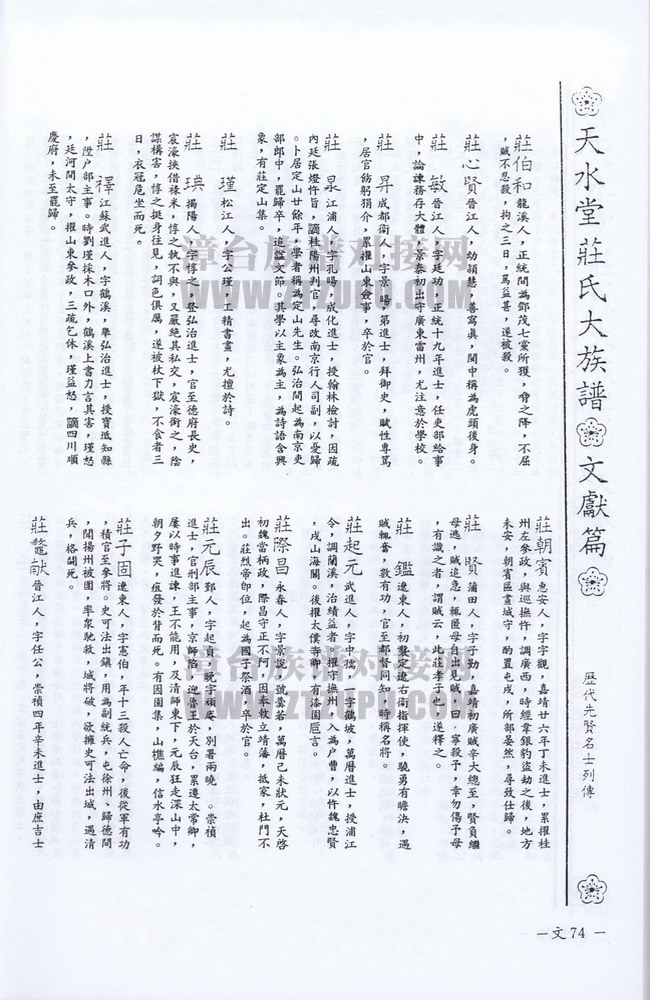 天水堂莊氏大族譜 文獻篇
歷代先賢名士列傳
莊伯和 龍溪人,正統間為鄧茂七黨所獲,脅之降,不屈
,賊不忍殺,拘之三日,罵益甚,遂被殺。
莊心賢 晉江人,幼穎慧,善寫真,閩中稱為虎頭後身。
莊 敏 晉江人,字廷功,正統十九年進士,任吏部給事
中,論諫務存大體,景泰初出守廣東雷州,尤注意於學校。
莊 昇 成都衛人,字景暘,第進士,拜御史,賦性專篤
,居官飭躬狷介,累擢山東僉事,卒於官。
莊 㫤 江浦人,字孔暘,成化進士,授翰林檢討,因疏
內廷張燈忤旨,謫桂陽州判官,尋改南京行人司副,以憂歸
。卜居定山廿餘年,學者稱為定山先生。弘治間起為南京吏
部郎中,罷歸卒,追諡文節。其學以主象為主,為詩語含興
象,有莊定山集。
莊 瑾 松江人,字公瑾,工精書畫,尤擅於詩。
莊 㻞 揭陽人,字惇之,登弘治進士,官至德府長史,
宸濠挾借祿米,惇之執不與,又嚴絕其私交,宸濠銜之,陰
謀構害,惇之挺身往見,詞色俱厲,遂被杖下獄,不食者三
日,衣冠危坐而死。
莊 襗 江蘇武進人,字鶴溪,舉弘治進士,授寶坻知縣
,陞戶部主事。時劉瑾採木口外,鶴溪上書力言其害,瑾怒
,廷河間太守,擢山東參政,三疏乞休,瑾益怒,謫四川順
慶府,未至罷歸。
莊朝賓 惠安人,字字觀,嘉靖廿六年丁未進士,累擢桂
州左參政,與巡撫忤,調廣西,時經韋銀豹盜劫之後,地方
未安,朝賓區畫城守,酌置屯戍,所部晏然,尋致仕歸。
莊 賢 蒲田人,字子勤,嘉靖初廣賊辛大總至,賢負繼
母逃,賊追急,輒匿母自出見賊,曰,寧殺予,幸勿傷予母
,有識之者,謂賊云,此莊孝子也,遂釋之。
莊 鑑 遼東人,初襲定遼右衛指揮使,驍勇有膽決,遇
賊輒奮,數有功,官至都督同知,時稱名將。
莊起元 武進人,字中孺,一字鶴坡,萬曆進士,授浦江
令,調蘭溪,治績益者,擢守撫州,入為戶曹,以忤魏忠賢
,戍山海關。後擢太僕寺卿,有漆園巵言。
莊際昌 永春人,字景說,號羹若,萬曆己未狀元,天啓
初魏當柄政,際昌守正不阿,因奉敕立靖藩,抵家,杜門不
出。莊烈帝卽位,起為國子祭酒,卒於官。
莊元辰 鄞人,字起貞,晚字頑庵,別署兩曉 。崇禎
進士,官刑部主事,京師陷,迎魯王於天台,累遷太常卿,
屢以時事進諫,王不能用,及清師東下,元辰狂走深山中,
朝夕野哭,疽發於背而死。有因園集,山樵編,信水亭吟。
莊子固 遼東人,字憲伯,年十三殺人亡命,後從軍有功
,積官至參將。史可法出鎮,用為副統兵,屯徐州、歸德間
,聞揚州被圍,率衆馳救,城將破,欲擁史可法出城,遇清
兵,格鬪死。
莊鼇献 晉江人,字任公,崇禎四年辛未進士,由庶吉士
—文 74—
漳台族谱对接网
WWW.ZZZUPU.COM
漳台族谱对接网
WWW.ZZZUPU.COM